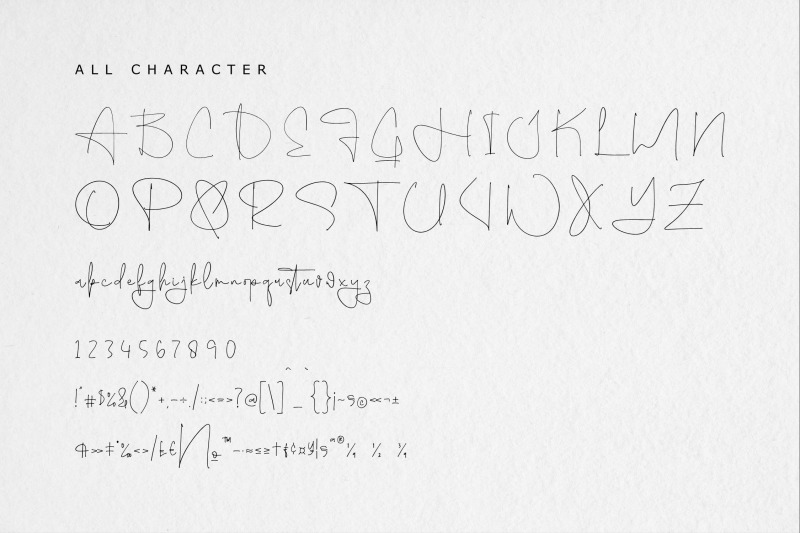 ALL CHARACTER
ABCDEFGHIJKLMN
OPQRSTUVWXYZ
abcdefghijklmnopqrstuvwxyz
1234567890
!"#$%&()*+,-÷./:;<=>?@[\]^_`{}¡~§©«¬±
¶»‡•‰<>/₤€№™—·≈≤≥†¢¤¥|§ª®¼ ½ ¼